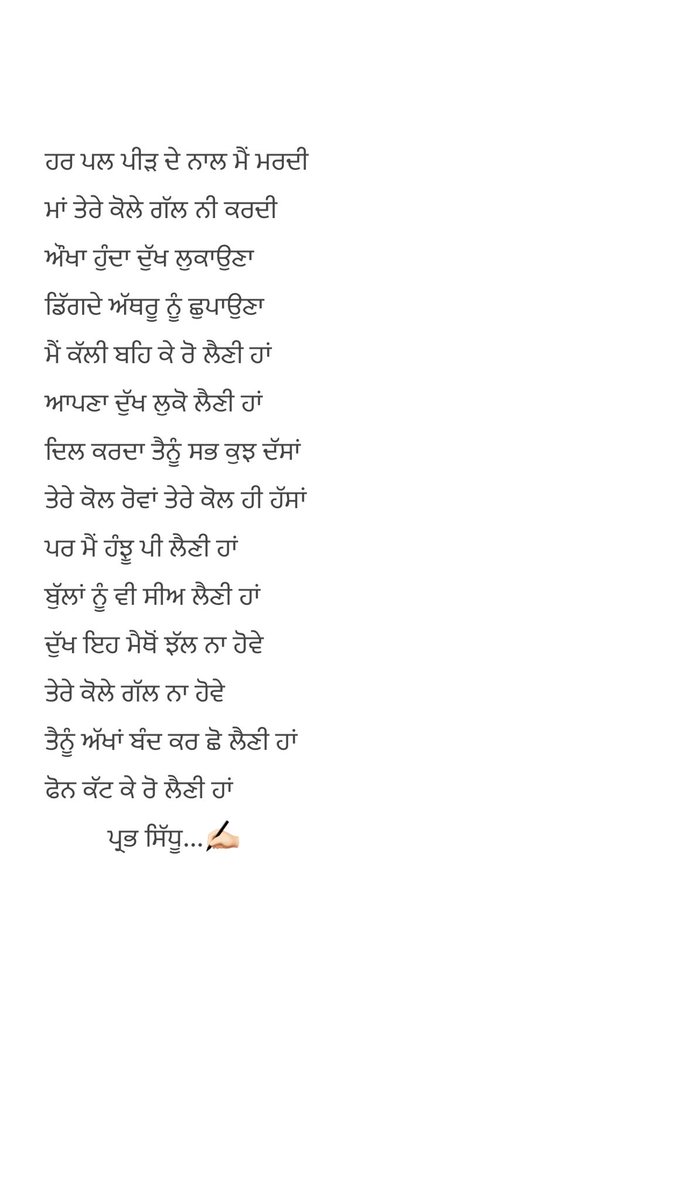 ਹਰ ਪਲ ਪੀੜ ਦੇ ਨਾਲ ਮੈਂ ਮਰਦੀ
ਮਾਂ ਤੇਰੇ ਕੋਲੇ ਗੱਲ ਨੀ ਕਰਦੀ
ਔਖਾ ਹੁੰਦਾ ਦੁੱਖ ਲੁਕਾਉਣਾ
ਡਿੱਗਦੇ ਅੱਥਰੂ ਨੂੰ ਛੁਪਾਉਣਾ
ਮੈਂ ਕੱਲੀ ਬਹਿ ਕੇ ਰੋ ਲੈਣੀ ਹਾਂ
ਆਪਣਾ ਦੁੱਖ ਲੁਕੋ ਲੈਣੀ ਹਾਂ
ਦਿਲ ਕਰਦਾ ਤੈਨੂੰ ਸਭ ਕੁਝ ਦੱਸਾਂ
ਤੇਰੇ ਕੋਲ ਰੋਵਾਂ ਤੇਰੇ ਕੋਲ ਹੀ ਹੱਸਾਂ
ਪਰ ਮੈਂ ਹੰਝੂ ਪੀ ਲੈਣੀ ਹਾਂ
ਬੁੱਲਾਂ ਨੂੰ ਵੀ ਸੀਅ ਲੈਣੀ ਹਾਂ
ਦੁੱਖ ਇਹ ਮੈਥੋਂ ਝੱਲ ਨਾ ਹੋਵੇ
ਤੇਰੇ ਕੋਲੇ ਗੱਲ ਨਾ ਹੋਵੇ
ਤੈਨੂੰ ਅੱਖਾਂ ਬੰਦ ਕਰ ਛੋ ਲੈਣੀ ਹਾਂ
ਫੋਨ ਕੱਟ ਕੇ ਰੋ ਲੈਣੀ ਹਾਂ
ਪ੍ਰਭ ਸਿੱਧੂ...✍🏻